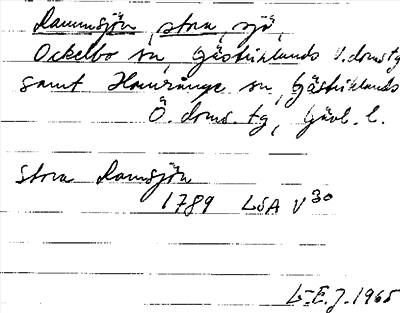 Rammsjön, stora, sjö,
Ockelbo sn, Gästriklands V. doms tg
samt Hamrånge sn, Gästriklands
Ö. doms. tg, Gävl. l.
Stora Ramsjön
1789 LSA V 30
L-E. J. 1965